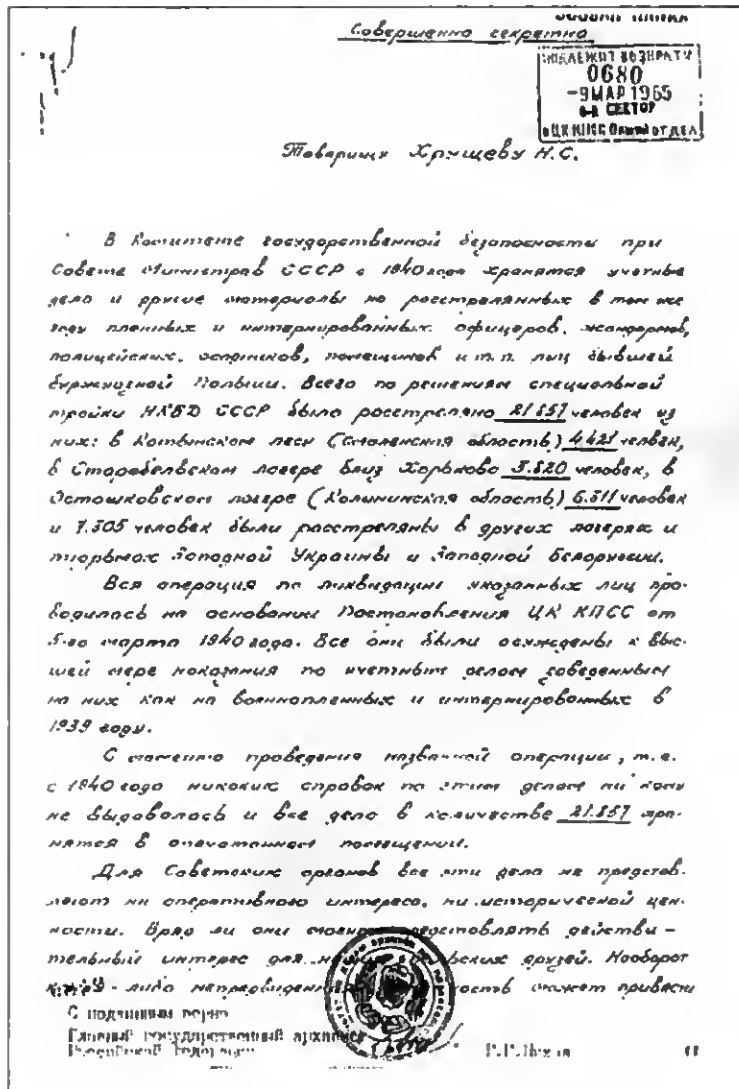 Совершенно секретно
ПОДЛЕЖИТ ВОЗВРАТУ
0680
-9 МАР 1965
СЕКТОР
Товарищу Хрущеву Н.С.
В Комитете государственной безопасности при
Совете Министров СССР с 1940 года хранятся учетные
дела и другие материалы на расстрелянных в том же
году пленных и интернированных офицеров, жандармов,
полицейских, осадников, помещиков и т.п. лиц бывшей
буржуазной Польши. Всего по решениям специальной
тройки НКВД СССР было расстреляно 21.857 человек из
них: в Катынском лесу (Смоленская область) 4.421 человек,
в Старобельском лагере близ Харькова 3.820 человек, в
Осташковском лагере (Калининская область) 6.311 человек
и 7.305 человек были расстреляны в других лагерях и
тюрьмах Западной Украины и Западной Белоруссии.
Вся операция по ликвидации указанных лиц про-
водилась на основании Постановления ЦК КПСС от
5-го марта 1940 года. Все они были осуждены к выс-
шей мере наказания по учетным делам заведенным
на них как на военнопленных и интернированных в
1939 году.
С момента проведения названной операции, т.е.
с 1940 года никаких справок по этим делам ни кому
не выдавалось и все дела в количестве 21.857 хра-
нятся в опечатанном помещении.
Для Советских органов все эти дела не представ-
ляют ни оперативного интереса, ни исторической цен-
ности. Вряд ли они могут представлять действи-
тельный интерес для наших польских друзей. Наоборот
какая-либо непредвиденная может привести
С подлинным верно
Главный государственный архивист
Российской Федерации